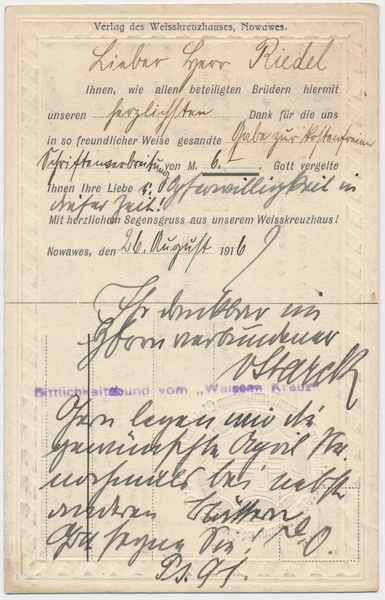 Verlag des Weisskreuzhauses, Nowawes.
Lieber Herr Riedel
Ihnen, wie allen beteiligten Brüdern hiermit
unseren herzlichsten Dank für die uns
in so freundlicher Weise gesandte Gabe zur kostenfreien
Schriftenverbreitung von M. 6.- Gott vergelte
Ihnen Ihre Liebe u. Opferwilligkeit in
dieser Zeit!
Mit herzlichem Segensgruss aus unserem Weisskreuzhaus!
Nowawes, den 26. August 1916
Ihr dankbar im
Herrn verbundener
v Starck
Sittlichkeitsbund vom „Weissen Kreuz"
Gern legen wir die
gewünschte April Nr.
nochmals bei nebst
anderen Blättern
Gott segne Sie!
Ps. 91.